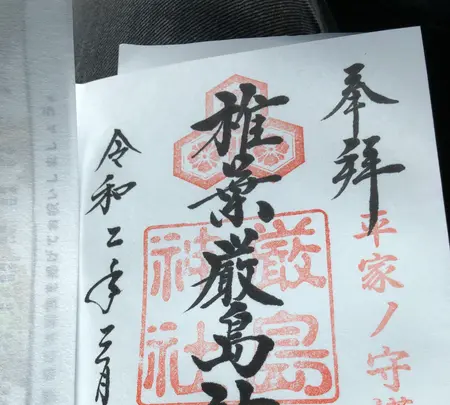 奉拝
平家ノ守護
椎葉厳島神
厳島
神社
令和二年三月